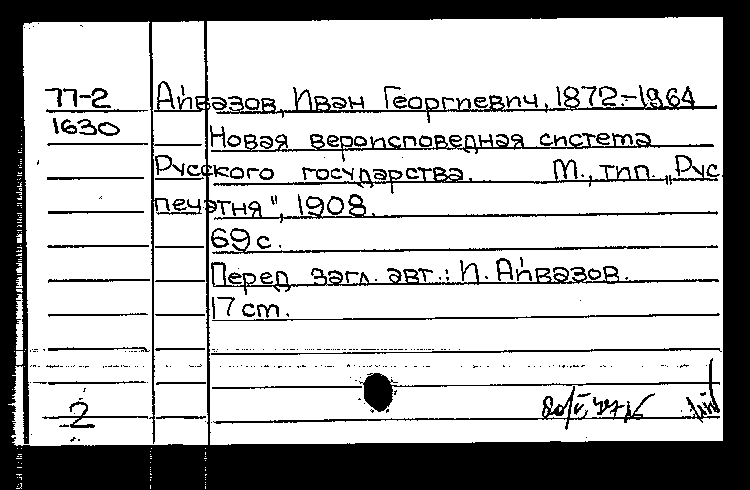 77-2 Айвазов, Иван Георгиевич, 1872.-1964
1630
Новая вероисповедная система
Русского государства. М., тип. „Рус.
печатня", 1908.
69 с.
Перед загл. авт.: И. Айвазов.
17 см.
2